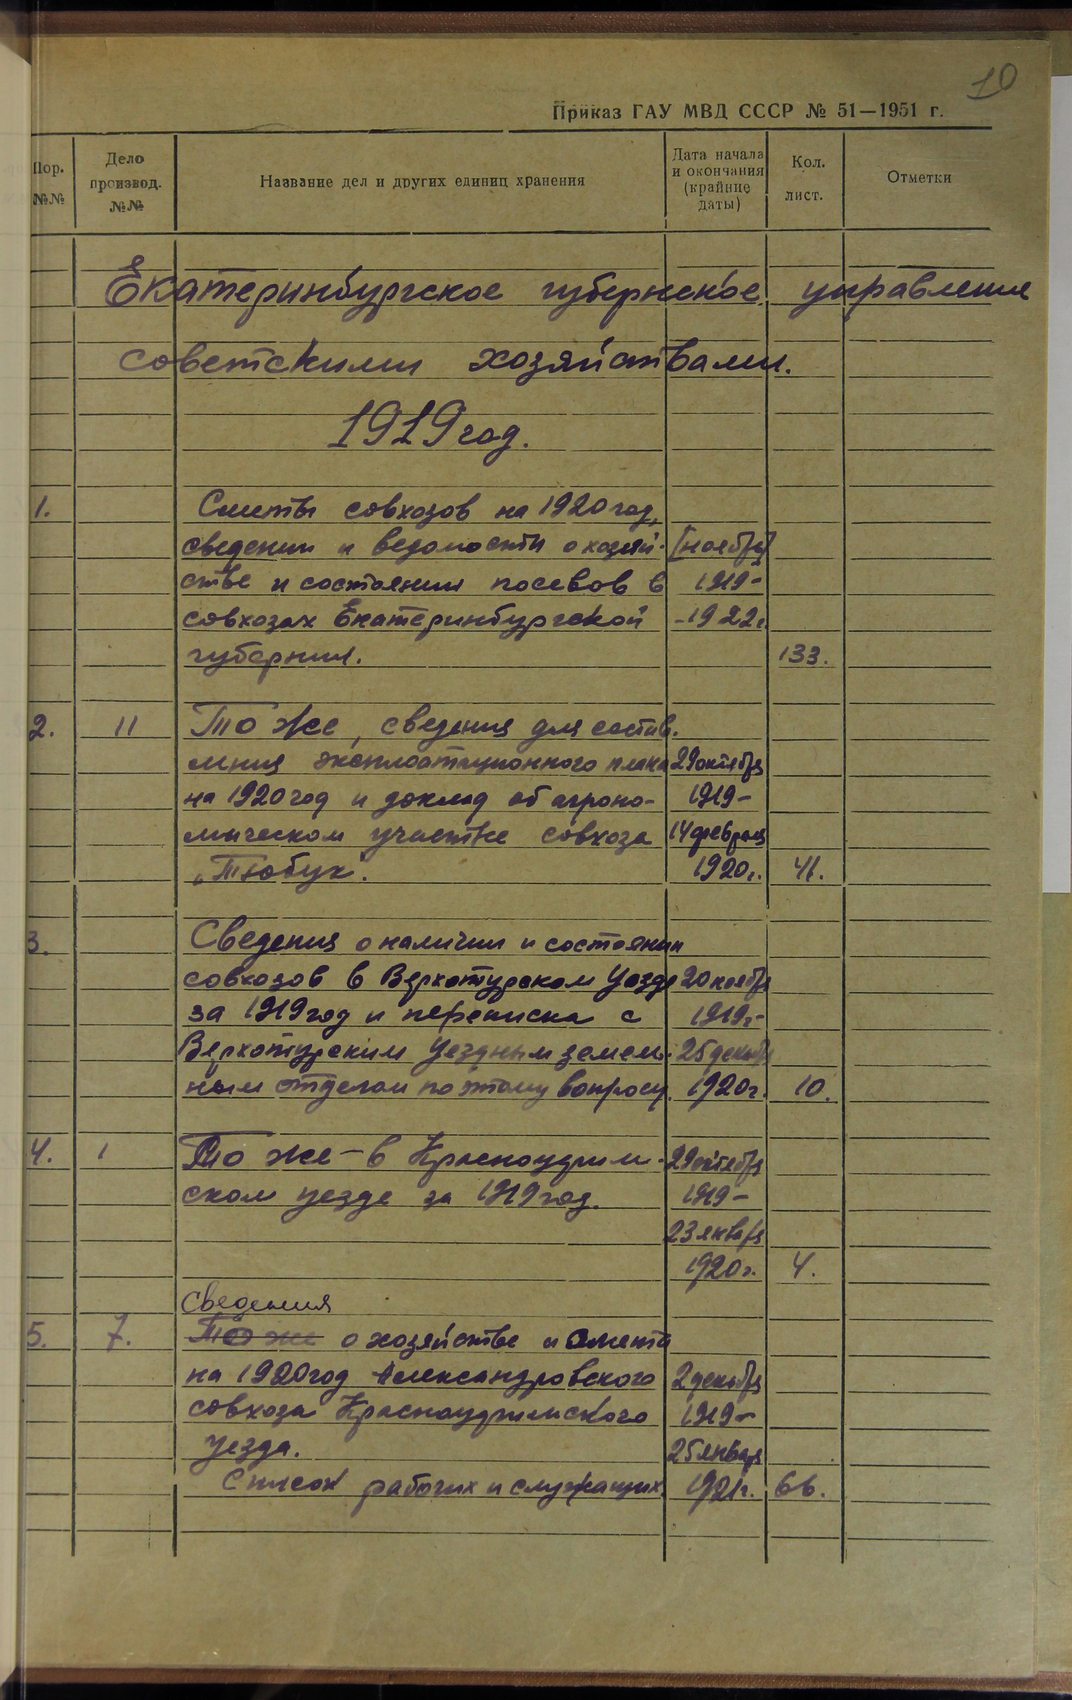 10
Приказ ГАУ МВД СССР № 51—1951 г.
Пор. №№
Дело производ. №№
Название дел и других единиц хранения
Дата начала и окончания (крайние даты)
Кол. лист.
Отметки
Екатеринбургское губернское управление
советскими хозяйствами.
1919 год.
1. Сметы совхозов на 1920 год,
сведения и ведомости о хозяй- [ноябрь]
стве и состоянии посевов в 1919-
совхозах Екатеринбургской -1922 г.
губернии. 133.
2. 11 То же, сведения для состав.
ления эксплоатационного плана 29 октября
на 1920 год и доклад об агроно- 1919-
мическом участке совхоза 14 февраля
„Тюбук". 1920 г. 41.
3. Сведения о наличии и состоянии
совхозов в Верхотурском уезде 20 ноября
за 1919 год и переписка с 1919 г-
Верхотурским уезднымземель- 25 декабря
ным отделом по этому вопросу. 1920 г. 10.
4. 1 То же - в Красноуфим- 29 октября
ском уезде за 1919 год. 1919-
23 января
1920 г. 4.
Сведения
5. 7. То же о хозяйстве и смета
на 1920 год Александровского 2 декабря
совхоза Красноуфимского 1919-
уезда. 25 января
Список рабочих и служащих. 1921 г. 66.